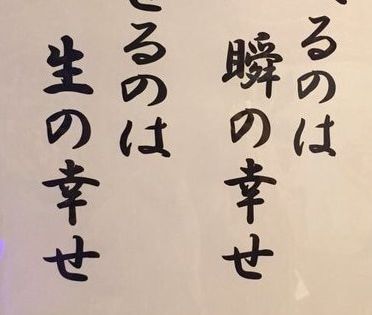 るのは
瞬の幸せ
せるのは
生の幸せ